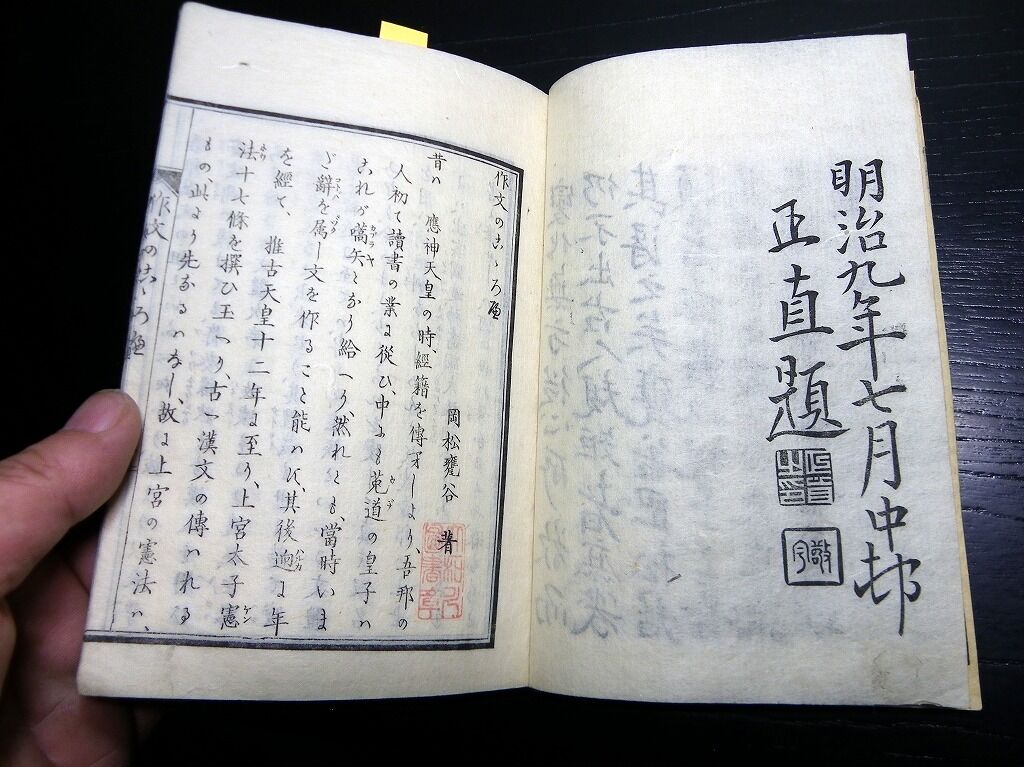 明治九年七月中邨
正直題
正直之印
敬宇
作文のこゝろえ
岡松甕谷 著
昔ハ 應神天皇の時、經籍を傳えしより、吾邦の
人初て讀書の業に從ひ、中にも菟道の皇子ハ
これが嚆矢となり給へり、然れとも、當時いま
だ辭を属し文を作ること能ハず、其後迥に年
を經て、 推古天皇十二年に至り、上宮太子憲
法十七條を撰ひ玉へり、古へ漢文の傳ハれる
もの、此より先なるハなし、故に上宮の憲法ハ、
作文のこゝろえ